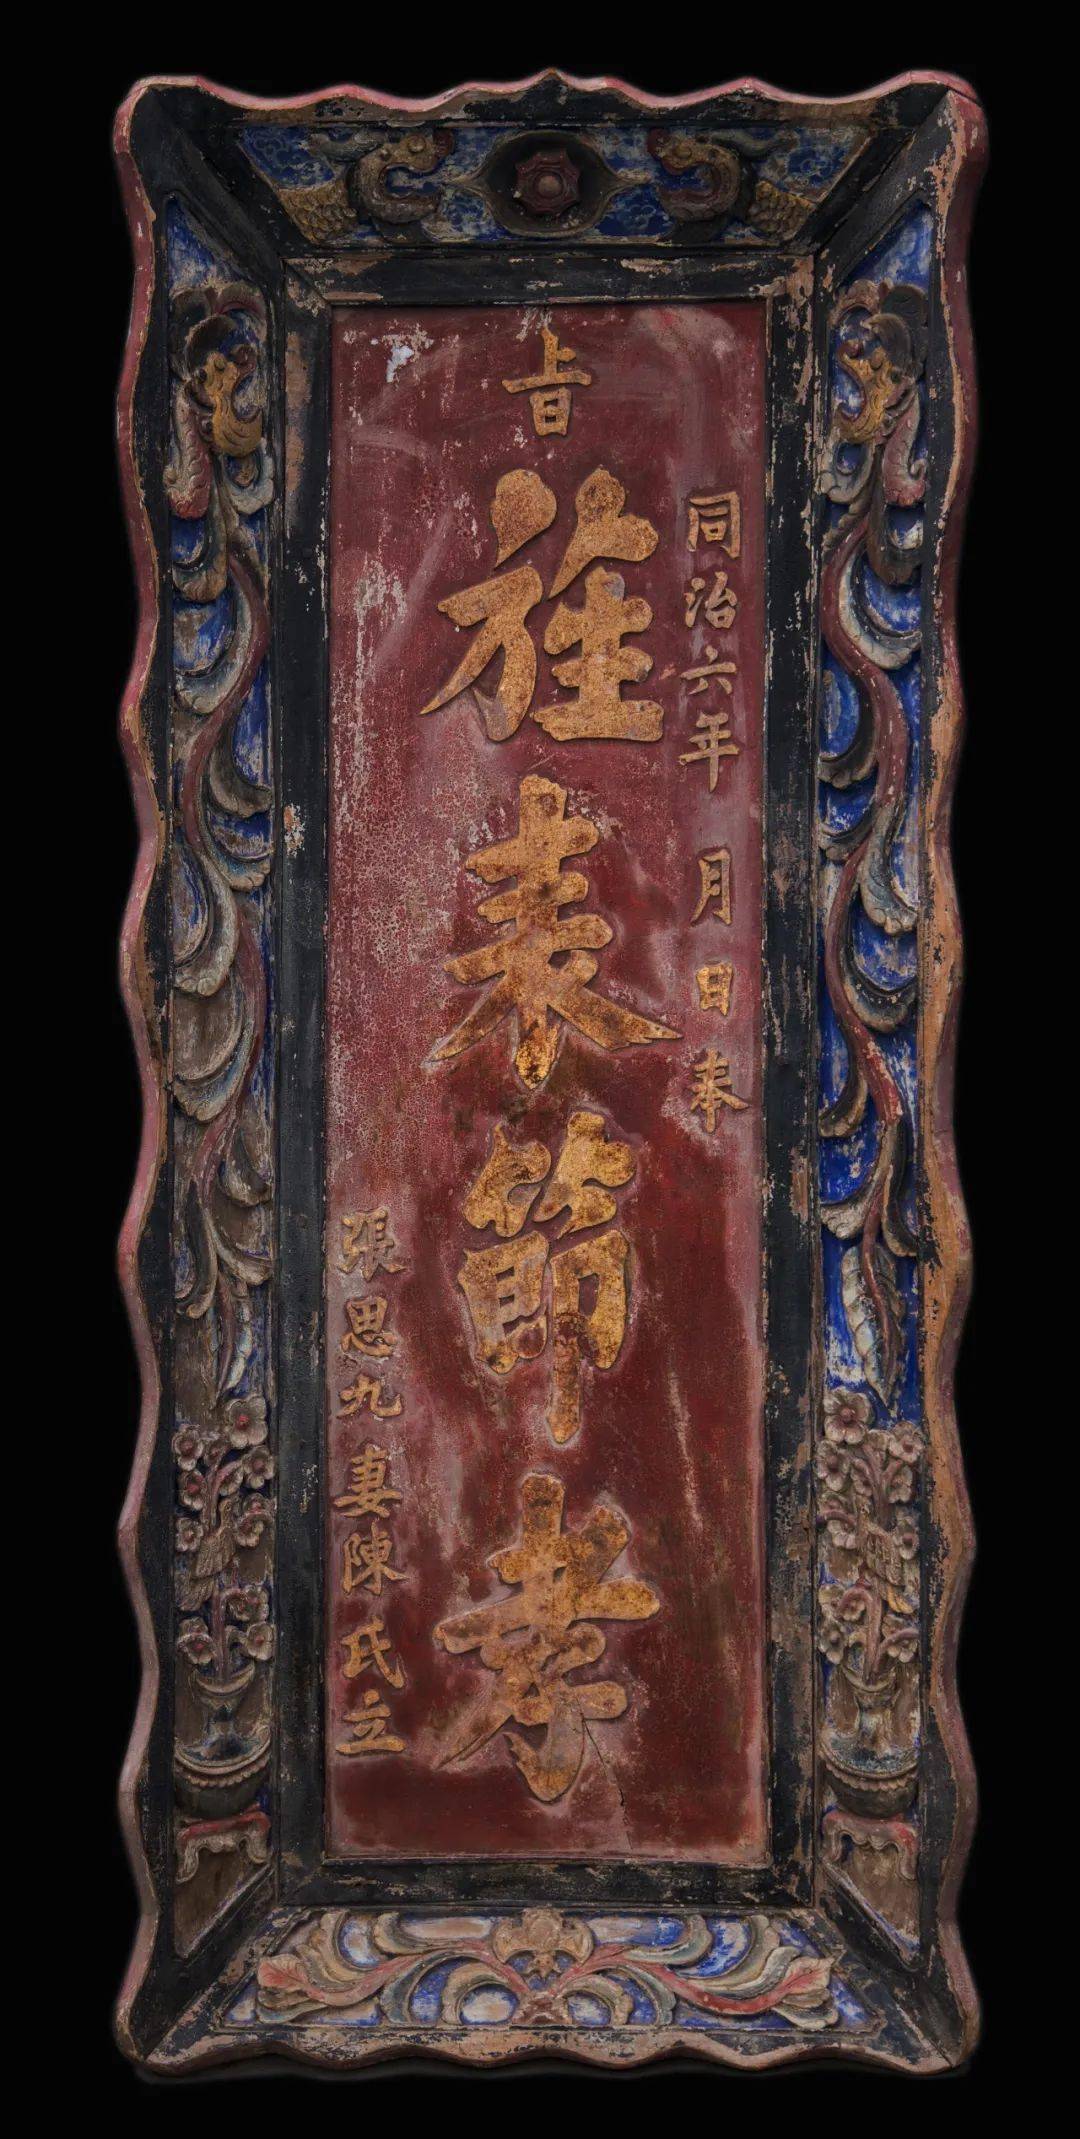 同治六年　月　日奉
旨
旌表節孝
張思九妻陳氏立